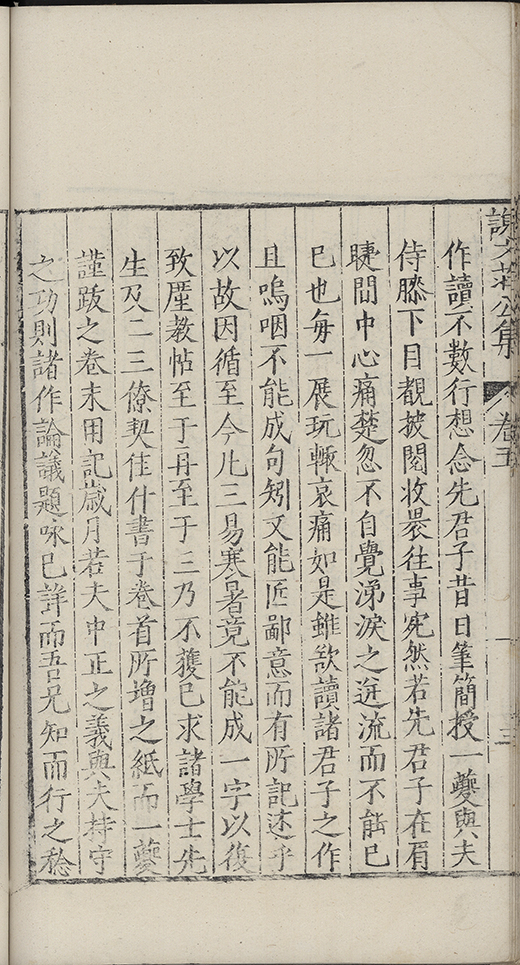 文莊公集 卷五 三
作讀不數行想念先君子昔日筆簡授一夔與夫
侍膝下目覩披閱收褁往事宛然若先君子在眉
睫間中心痛楚忽不自覺涕淚之迸流而不能已
已也每一展玩輙哀痛如是雖欲讀諸君子之作
且嗚咽不能成句矧又能匠鄙意而有所記述乎
以故因循至今凡三易寒暑竟不能成一字以復
致塵教帖至于再至于三乃不獲已求諸學士先
生及二三僚契佳什書于卷首所增之紙而一夔
謹䟦之卷末用記歲月若夫中正之義與夫持守
之功則諸作論議題咏已詳而吾兄知而行之稔